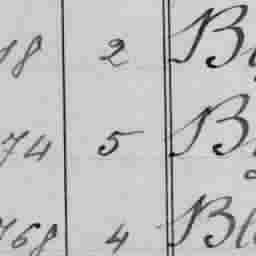 18 2 B
74 5 B
768 4 Bl